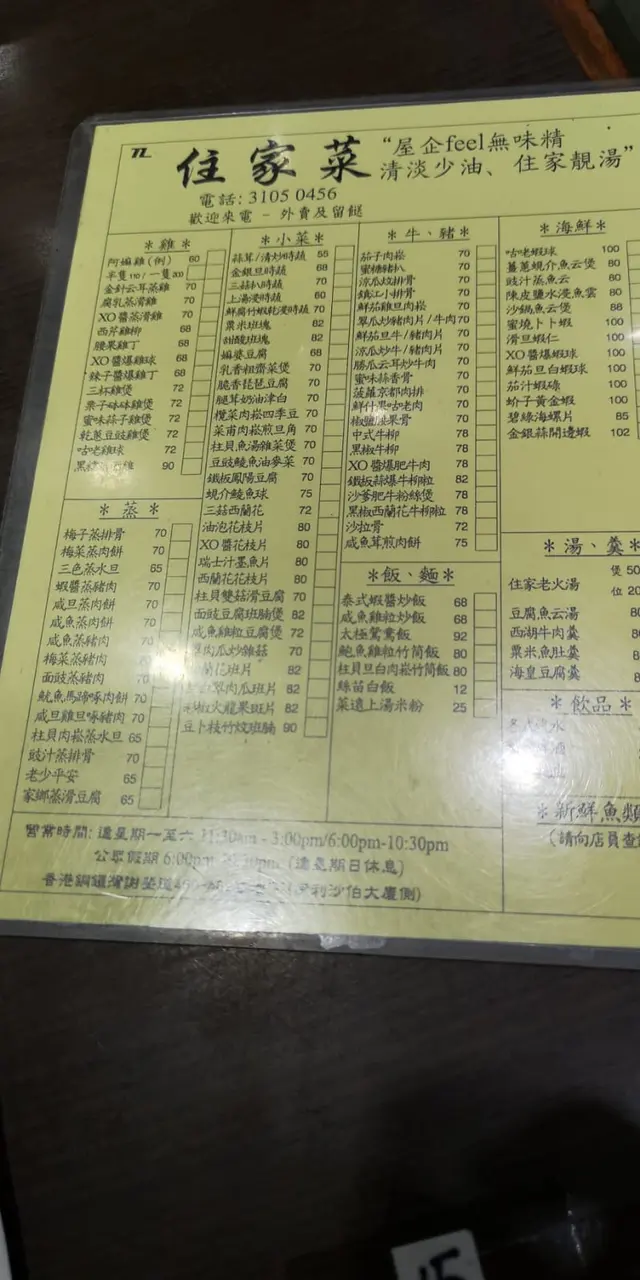 住家菜
“屋企feel無味精
清淡少油、住家靚湯”
電話: 3105 0456
歡迎來電 - 外賣及留餸
＊雞＊
阿嫲雞 (例) 60
半隻110 / 一隻200
金針云耳蒸雞 70
腐乳蒸滑雞 70
XO醬蒸滑雞 70
西芹雞柳 68
腰果雞丁 68
XO醬爆雞球 68
辣子醬爆雞丁 68
三杯雞煲 72
栗子砵砵雞煲 72
蜜味蒜子雞煲 72
乾蔥豆豉雞煲 72
咕老雞球 72
黑椒 雞 90
＊蒸＊
梅子蒸排骨 70
梅菜蒸肉餅 70
三色蒸水旦 65
蝦醬蒸豬肉 70
咸旦蒸肉餅 70
咸魚蒸肉餅 70
咸魚蒸豬肉 70
梅菜蒸豬肉 70
面豉蒸豬肉 70
魷魚馬蹄啄肉餅 70
咸旦雞旦啄豬肉 70
柱貝肉崧蒸水旦 65
豉汁蒸排骨 70
老少平安 65
家鄉蒸滑豆腐 65
＊小菜＊
蒜茸/清炒時蔬 55
金銀旦時蔬 68
三菇扒時蔬 70
上湯浸時蔬 60
鮮腐竹蝦乾浸時蔬 70
粟米班塊 82
甜酸班塊 82
嫲婆豆腐 68
乳香粗齋菜煲 70
脆香琵琶豆腐 70
腿茸奶油津白 70
欖菜肉崧四季豆 70
菜甫肉崧煎旦角 70
柱貝魚湯雜菜煲 70
豆豉鯪魚油麥菜 70
鐵板鳳陽豆腐 70
蜆介鯪魚球 75
三菇西蘭花 72
油泡花枝片 80
XO醬花枝片 80
瑞士汁墨魚片 80
西蘭花花枝片 80
柱貝雙菇滑豆腐 70
面豉豆腐班腩煲 82
咸魚雞粒豆腐煲 72
翠肉瓜炒雜菇 70
蘭花班片 82
翠肉瓜班片 82
火龍果班片 82
豆卜枝竹炆班腩 90
＊牛、豬＊
茄子肉崧 70
蜜糖豬扒 70
涼瓜炆排骨 70
鎮江小排骨 70
鮮茄雞旦肉崧 70
翠瓜炒豬肉片/牛肉 70
鮮茄旦牛/豬肉片 70
涼瓜炒牛/豬肉片 70
勝瓜云耳炒牛肉 70
蜜味蒜香骨 70
菠蘿京都肉排 70
鮮什果咕老肉 70
椒鹽腰果骨 70
中式牛柳 78
黑椒牛柳 78
XO醬爆肥牛肉 78
鐵板蒜爆牛柳粒 82
沙爹肥牛粉絲煲 78
黑椒西蘭花牛柳粒 78
沙拉骨 72
咸魚茸煎肉餅 75
＊飯、麵＊
泰式蝦醬炒飯 68
咸魚雞粒炒飯 68
太極鴛鴦飯 92
鮑魚雞粒崧竹筒飯 80
柱貝旦白肉崧竹筒飯 80
絲苗白飯 12
菜遠上湯米粉 25
＊海鮮＊
咕老蝦球 100
薑蔥蜆介魚云煲 80
豉汁蒸魚云 80
陳皮鹽水浸魚雲 80
沙鍋魚云煲 88
蜜燒卜卜蝦 100
滑旦蝦仁 100
XO醬爆蝦球 100
鮮茄旦白蝦球 100
茄汁蝦碌 100
蚧子黃金蝦 100
碧綠海螺片 85
金銀蒜開邊蝦 102
＊湯、羹＊
住家老火湯 煲 50
位 20
豆腐魚云湯
西湖牛肉羹
粟米魚肚羹
海皇豆腐羹
＊飲品＊
＊新鮮魚類
(請向店員查
營業時間: 逢星期一至六 11:30am - 3:00pm/6:00pm-10:30pm
公眾假期 6:00pm (逢星期日休息)
香港銅鑼灣謝斐道 利沙伯大廈側)
15